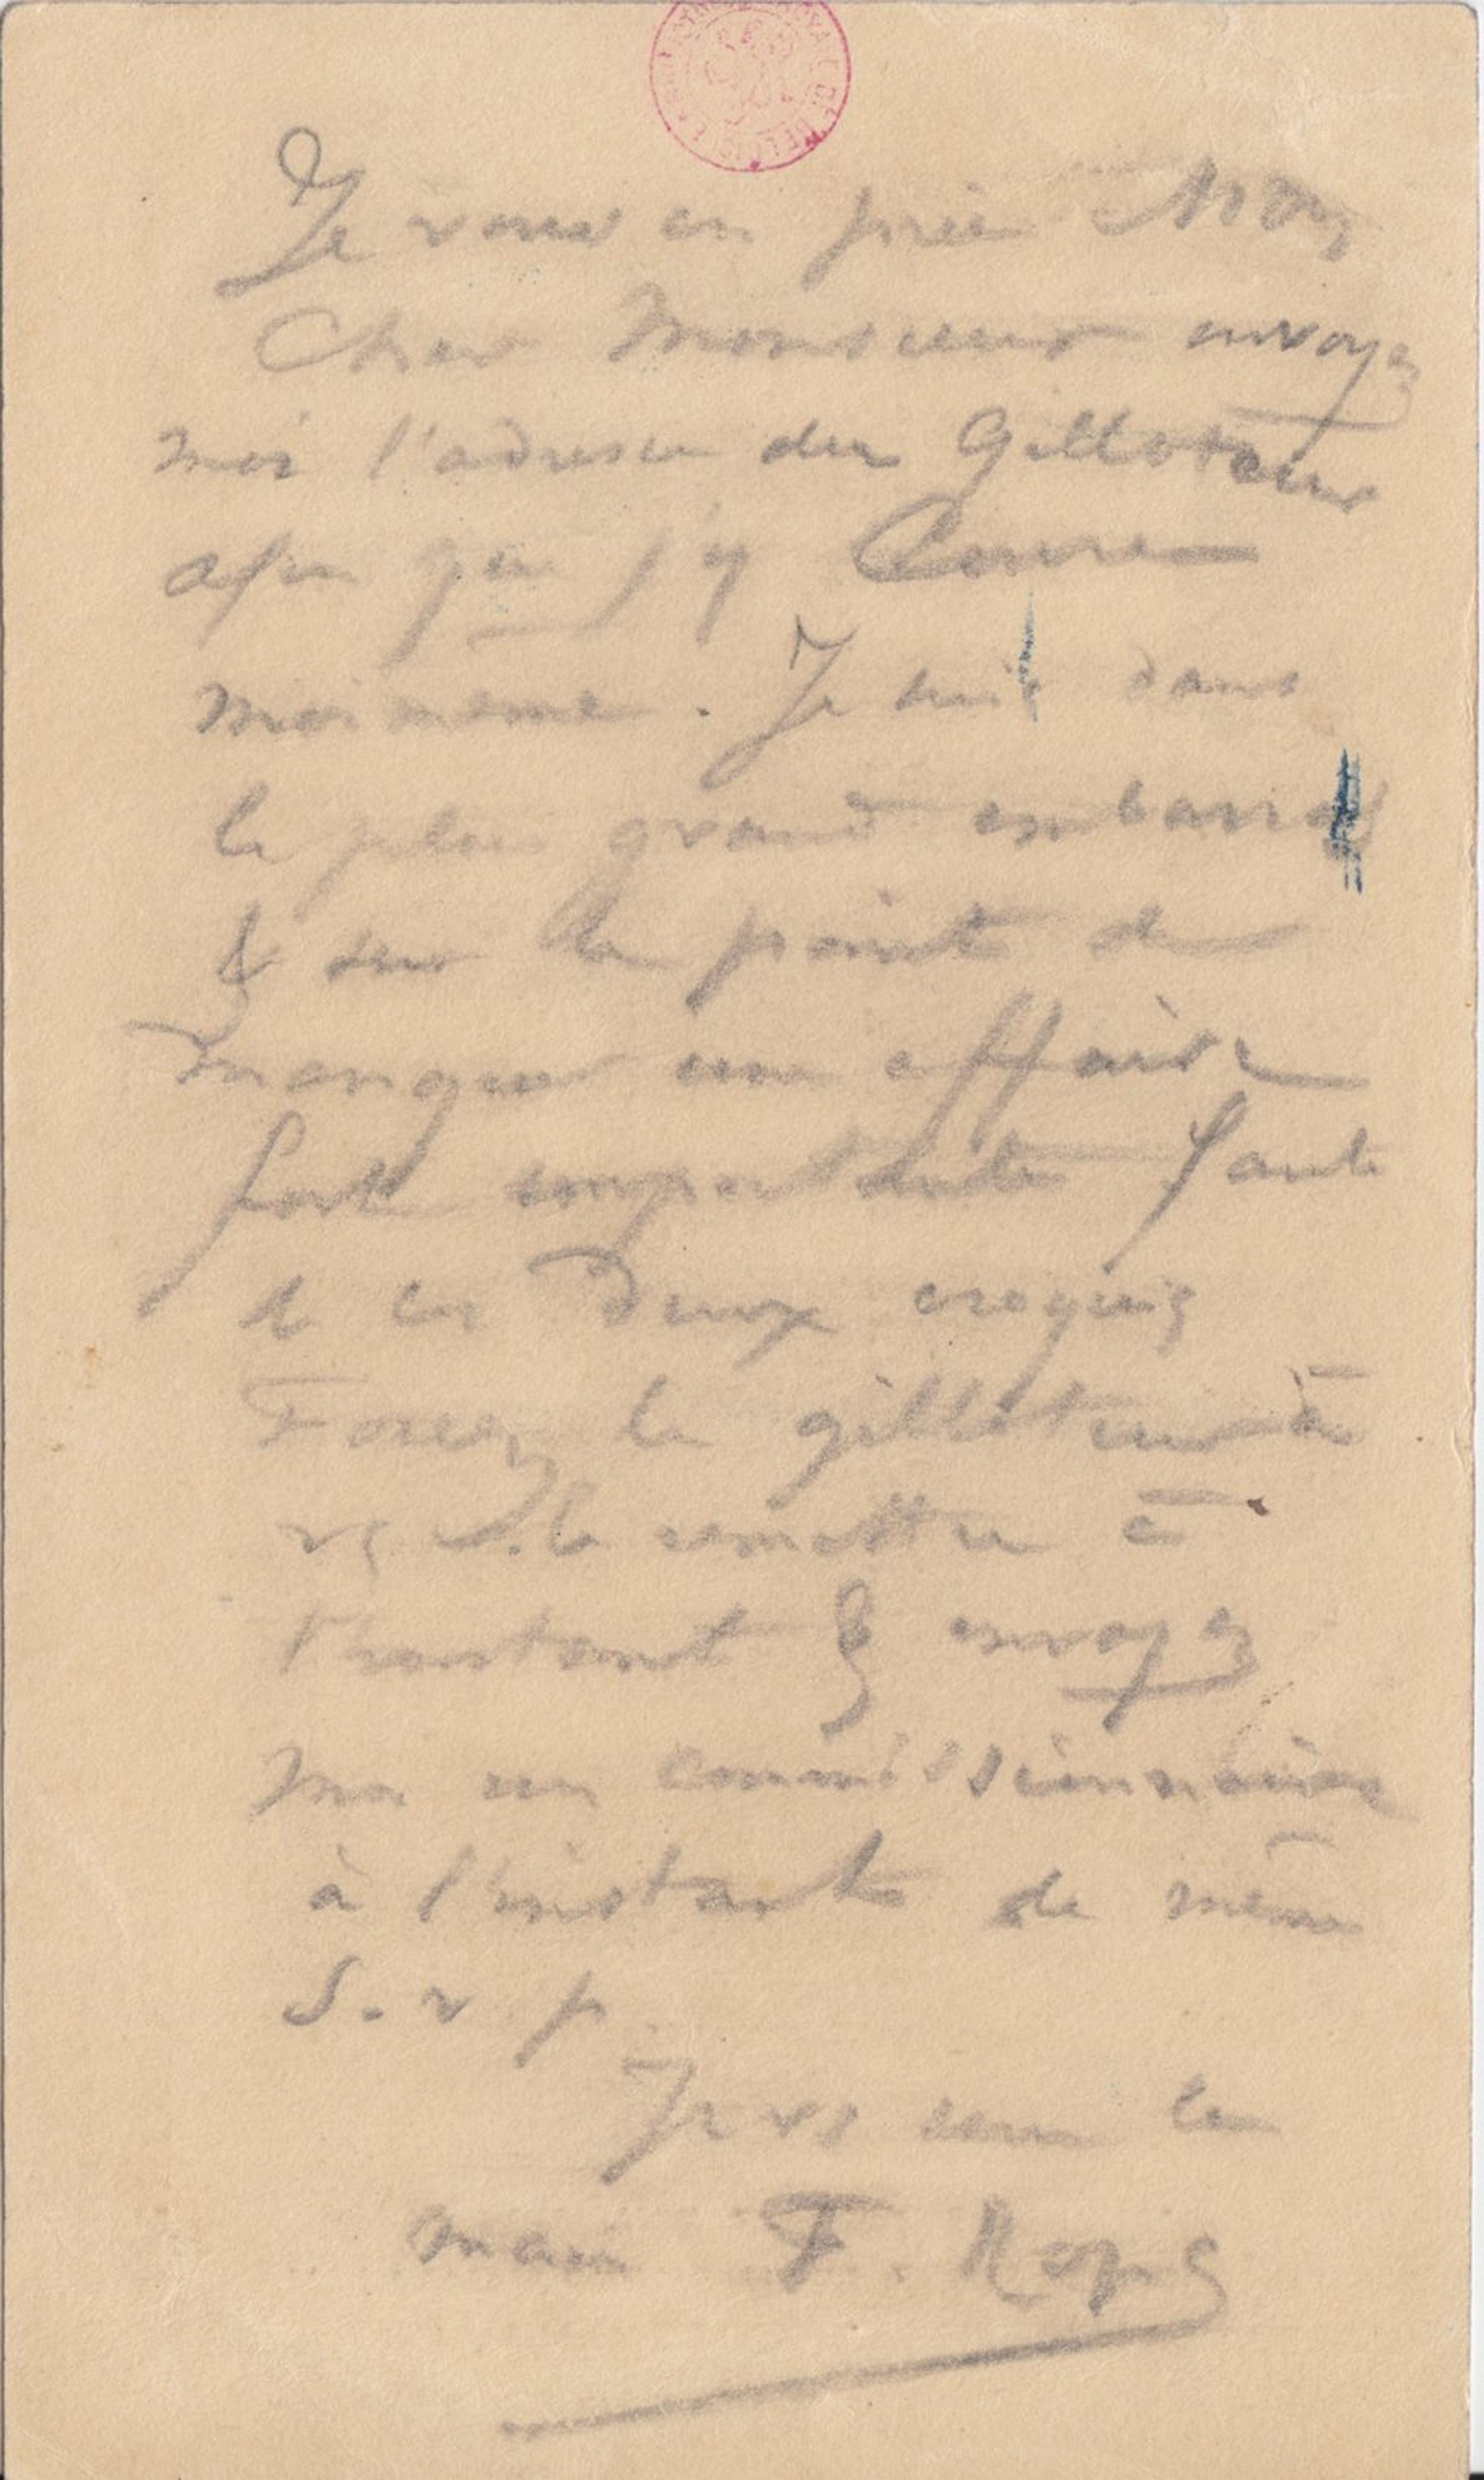 Je vous en prie Mon
Cher Monsieur envoyez
moi l'adresse du Gilloteur
afin que j'y Coure
moi même. Je suis dans
le plus grand embarras
& sur le point de
manquer une affaire
fort importante faute
de ces deux croquis
Forcez le gilloteur à
vs les remettre à
l'instant & envoyez
moi un commissionnaire
à l'instant de même
S. v p
Je vs serre la
main F. Rops